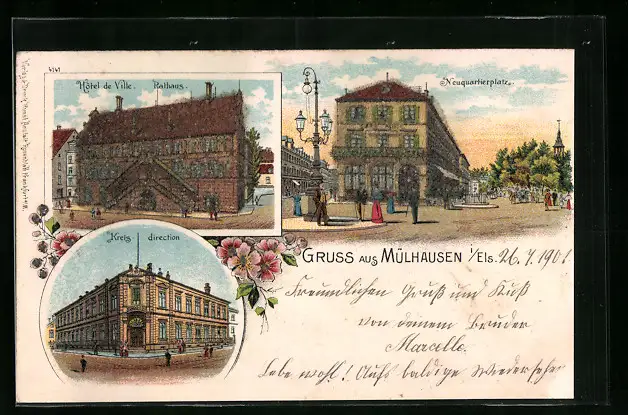 4141
Hôtel de Ville. Rathaus.
Neuquartierplatz.
Kreis direction
GRUSS AUS MÜLHAUSEN i/Els. 26.7.1901
Freundlichen Gruß und Kuß
von deinem Bruder
Marcelle.
Lebe wohl! Aufs baldige Wiedersehen